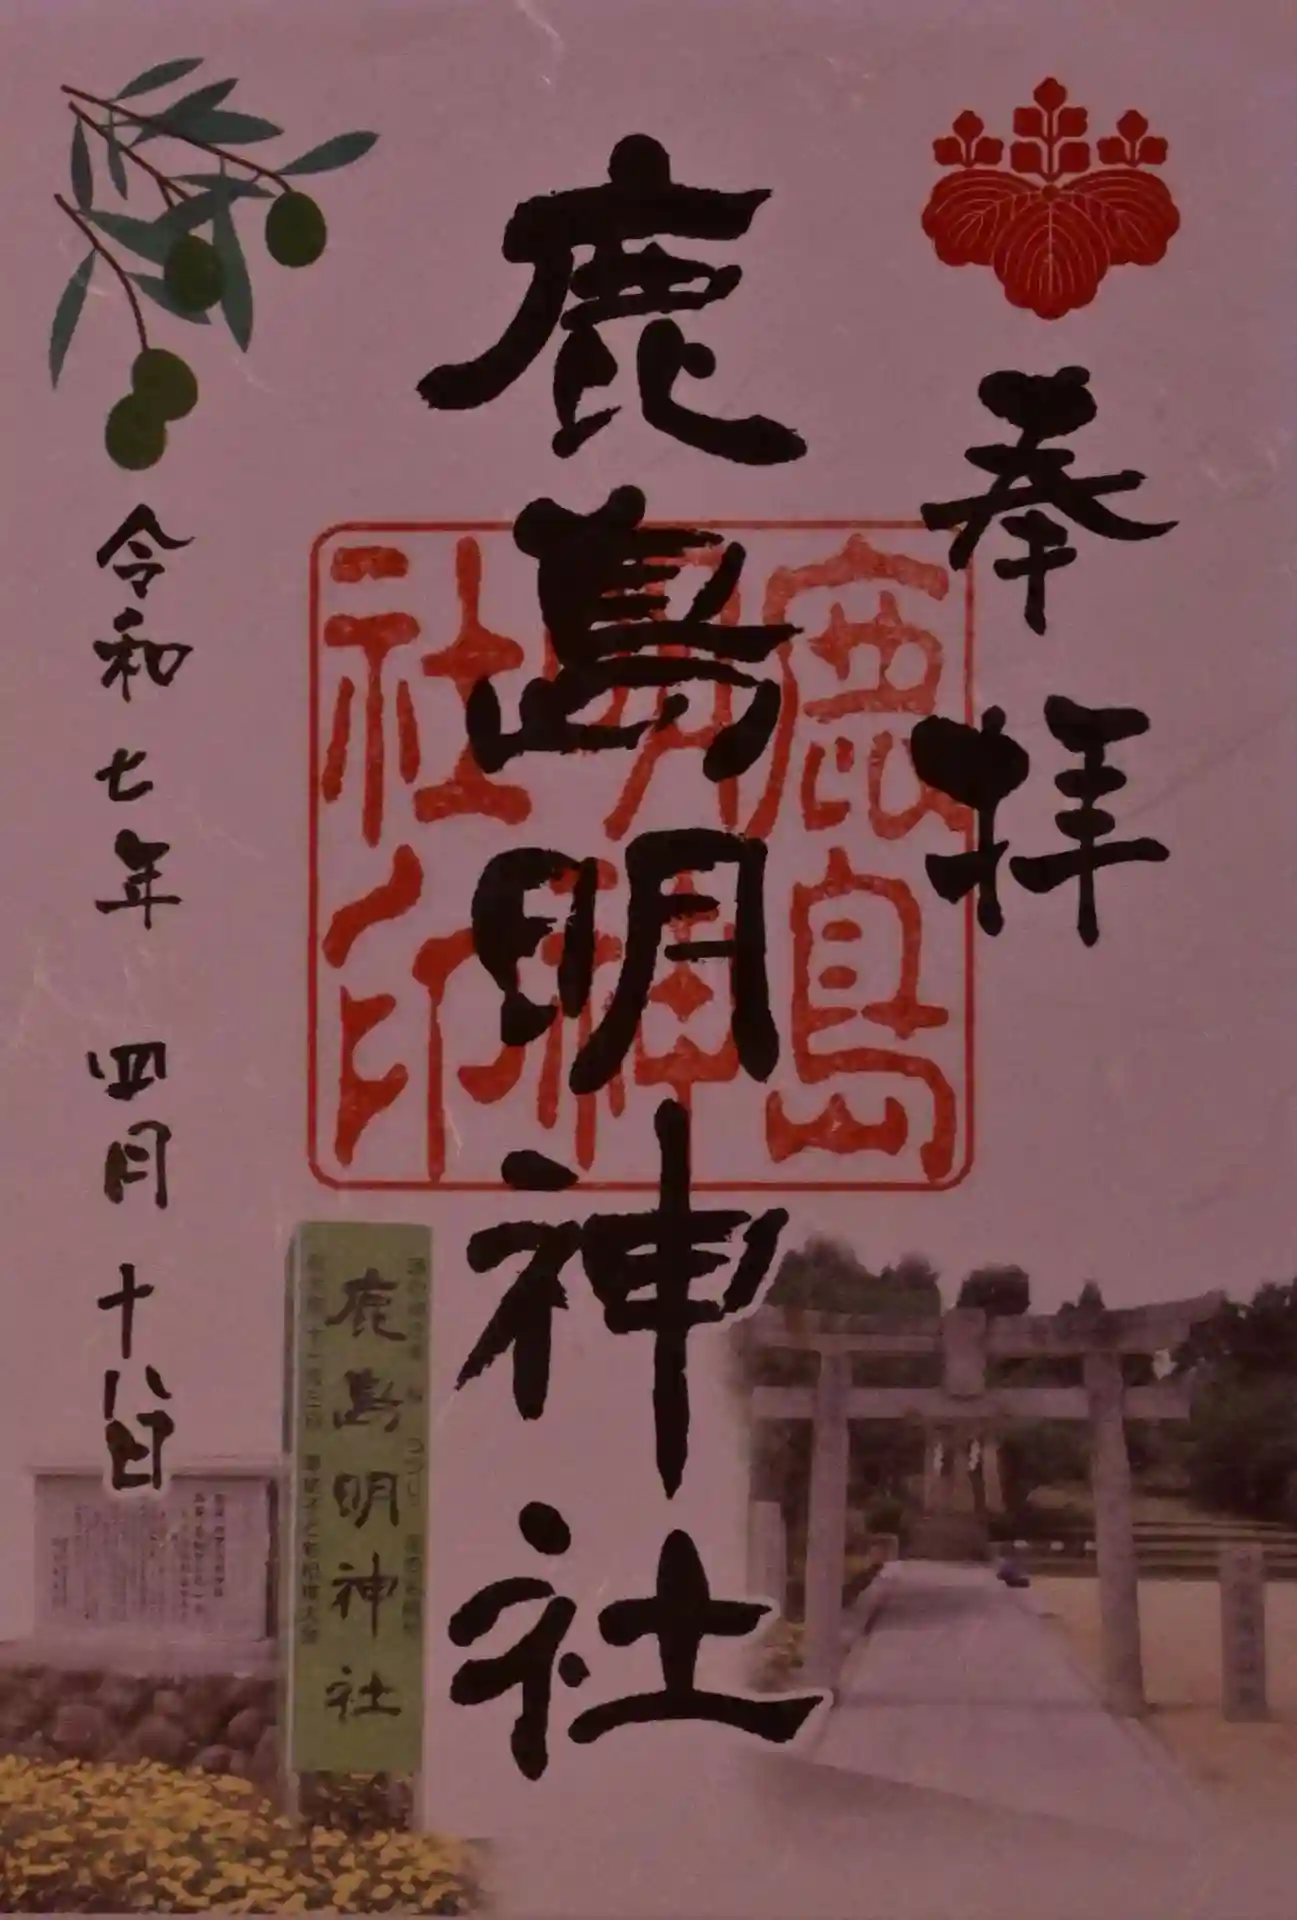 奉拝
鹿島明神社
鹿島
明神
社印
令和七年 四月十八日
鹿島明神社